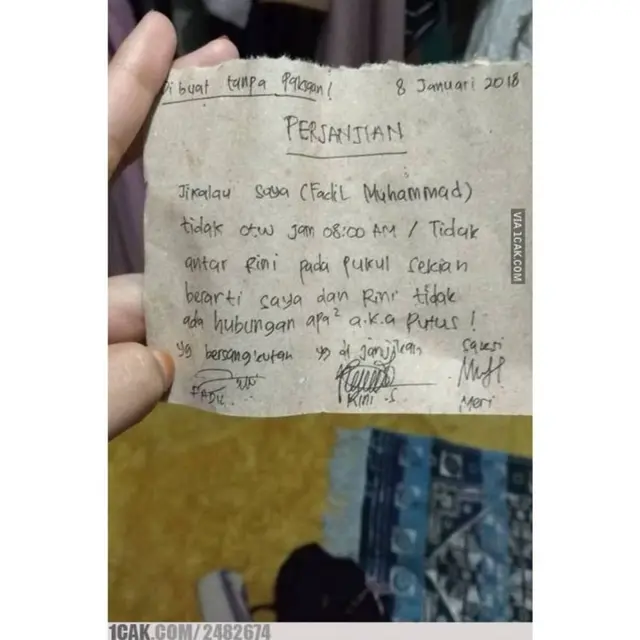 Di buat tanpa paksaan! 8 Januari 2018
PERJANJIAN
Jikalau saya (Fadil Muhammad)
tidak otw jam 08:00 AM / Tidak
antar Rini pada pukul sekian
berarti saya dan Rini tidak
ada hubungan apa² a.k.a Putus!
yg bersangkutan yg di janjikan saksi
FADIL Rini .S Meri
VIA 1CAK.COM
1CAK.COM/2482674